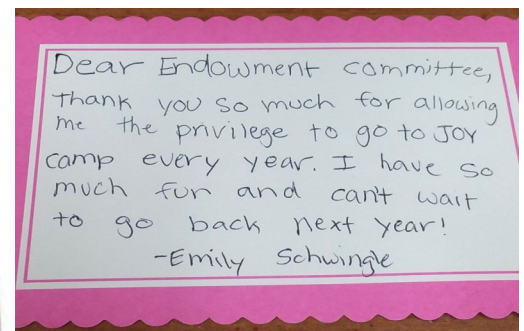 Dear Endowment committee,
Thank you so much for allowing
me the privilege to go to JOY
camp every year. I have so
much fun and can't wait
to go back next year!
-Emily Schwingle